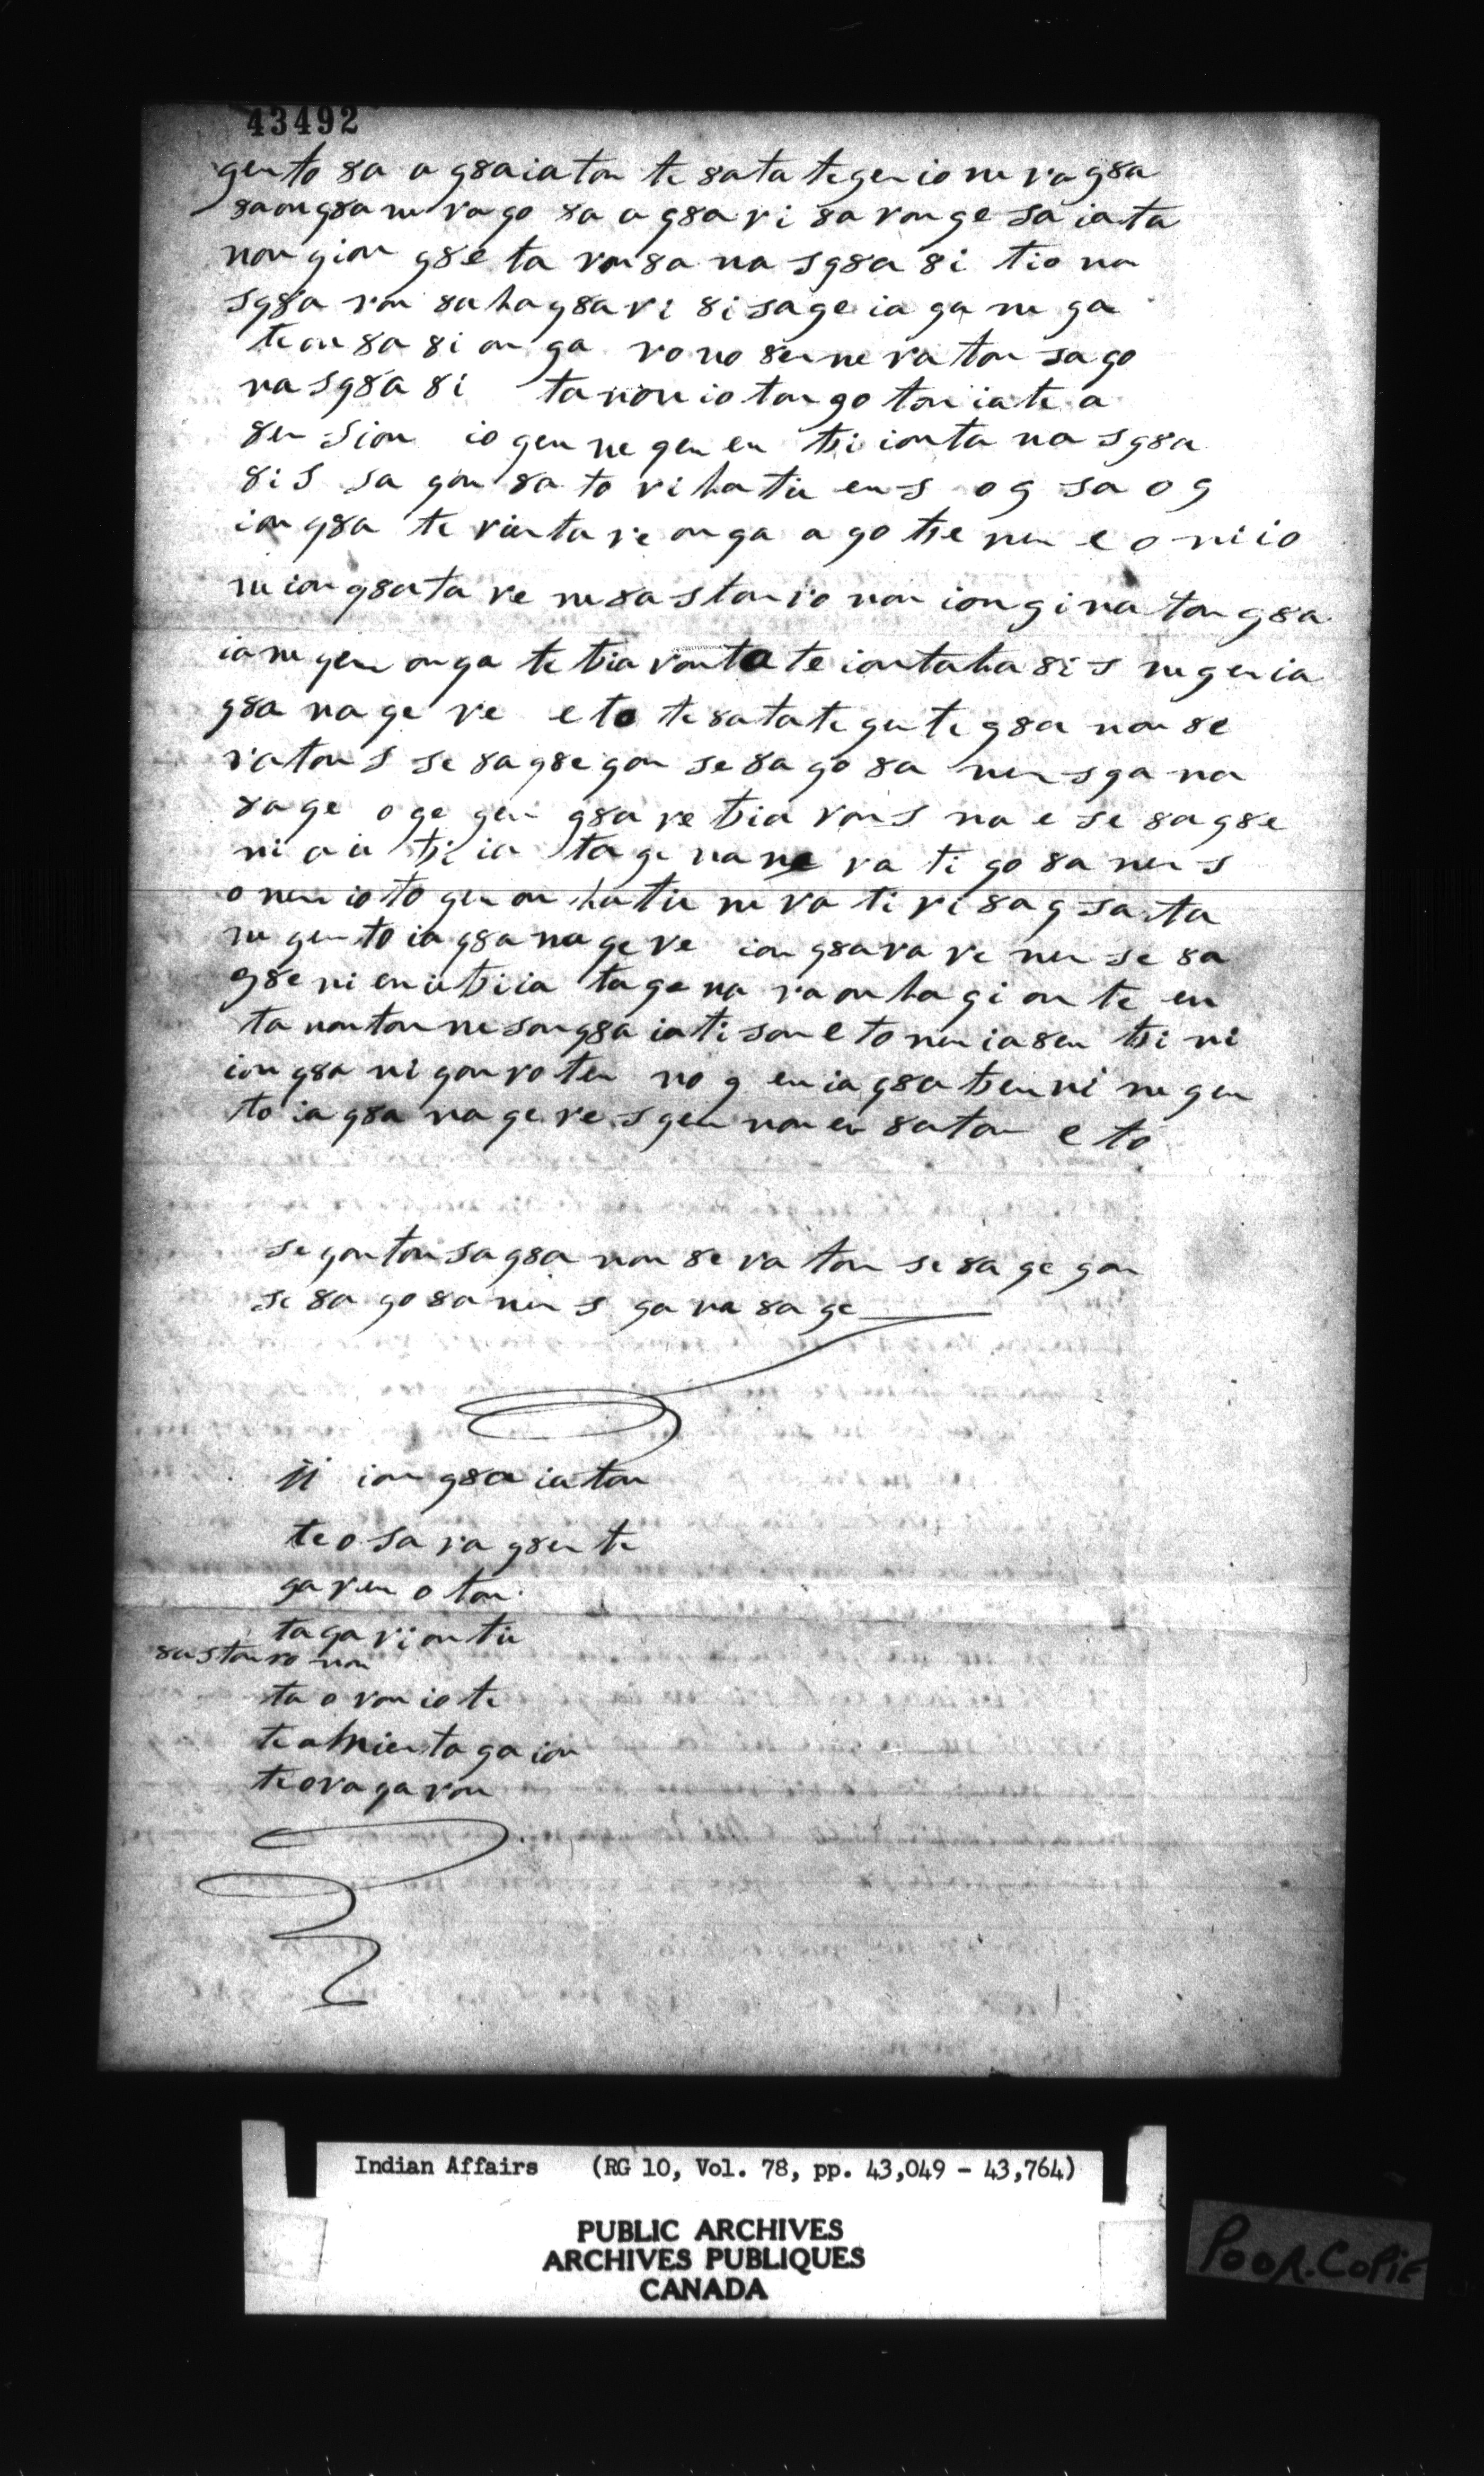 43492
gento 8a a g8aiaton te 8ata tegenio ne rag8a
8aong8a ne rago 8a a g8a ri 8a ronge sa iata
non gion g8e ta ron8a na sg8a 8i tio na
sg8a ron 8a hag8a ri 8i sage ia ga ne ga
te on 8a 8i on ga ro no 8en ne ra ton sa go
na sg8a 8i ta non io ton go ton ia te a
8en sion io gen ne gen en tsi ionta na sg8a
8i s sa gon 8a to ri ha tie en s og sa og
ion g8a te rienta re onga a go tse nen e o ni io
ne ion g8ata re ne 8a ston ro non iongi na ton g8a
ia ne gen onga te tsia ronta te iontaha 8i s ne gen ia
g8a na ge re eto te 8ata te gen te g8a non 8e
ratons se 8a g8e gon se 8a go 8a nen s ga na
8a ge o ge gen g8a re tsia rons na e se 8a g8e
ni a ie tsi ia ta ge na ne ra ti go 8a nen s
o nen io to gen on hatie ne ra ti ri 8a g sa ta
ne gen to ia g8a na ge re ion g8a ra re nen se 8a
g8e ni en ie tsi ia ta ge na ra on ha gi on te en
ta non ton ne son g8a ia ti son e to nen ia 8en tsi ni
ion g8a ni gon ro ten no g en ia g8a tsen ni ne gen
to ia g8a na ge re s gen non en 8a ton e to
se gon ton sa g8a non 8e ra ton se 8a ge gon
se 8a go 8a nen s ga na 8a ge
ion g8a ia ton
te o sa ra g8en te
ga ren o ton
ta ga ri on tie
8a ston ro non
ta o ron io te
te a hnien ta ga ion
te o ra ga ron
Indian Affairs (RG 10, Vol. 78, pp. 43,049 - 43,764)
PUBLIC ARCHIVES
ARCHIVES PUBLIQUES
CANADA
POOR.COPIE